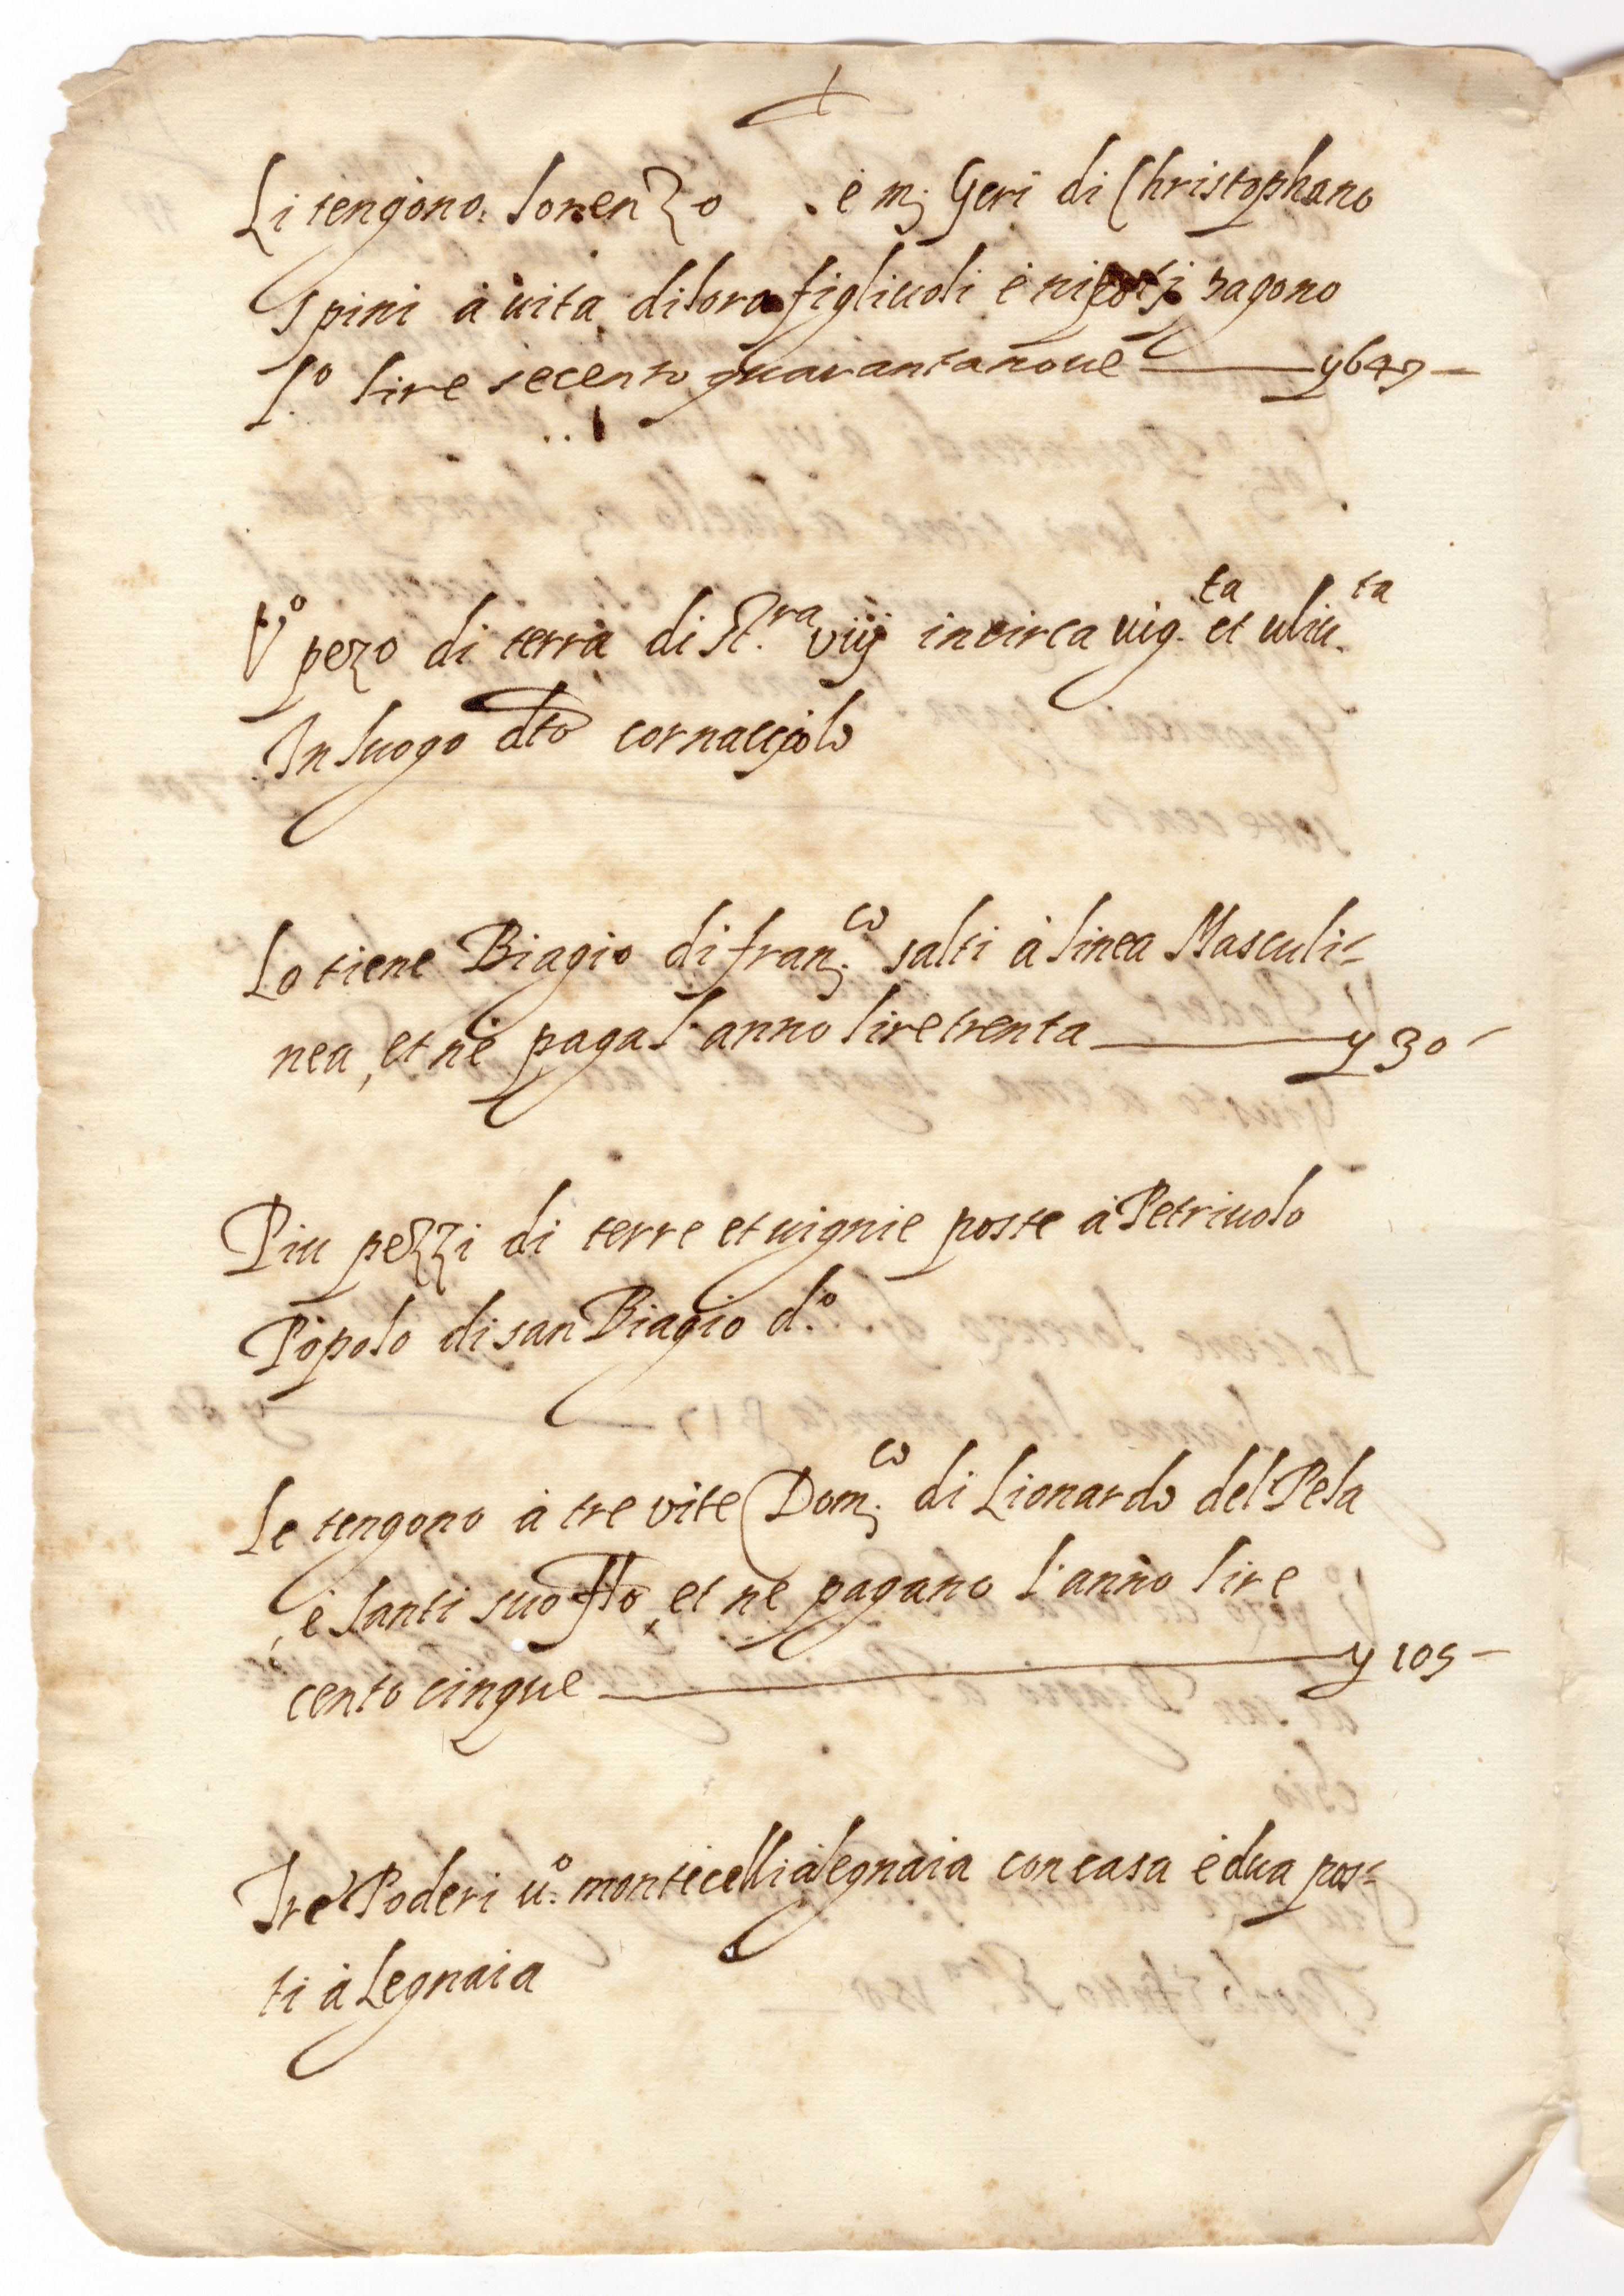 Li tengono. lorenzo . e m; Geri di Christophano
spini à uita di loro figliuoli e nipoti pagono
l.o lire secento quarantanoue — y 649 —
V.o pezo di terra di St.ra viij incirca uig.ta et uliu.ta
In luogo dto cornacciolo
Lo tiene Biagio di fran.co salti à linea Masculi-
nea, et ne paga l'anno lire trenta — y 30 -
Piu pezzi di terre et uignie poste à Petriuolo
Popolo di san Biagio d.o
Le tengono à tre vite Dom.co di Lionardo del Pela
e santi suo fflo, et ne pagano l'anno lire
cento cinque — y 105 -
Tre Poderi u.o monticelli à legnaia con casa e dua pos-
ti à Legnaia